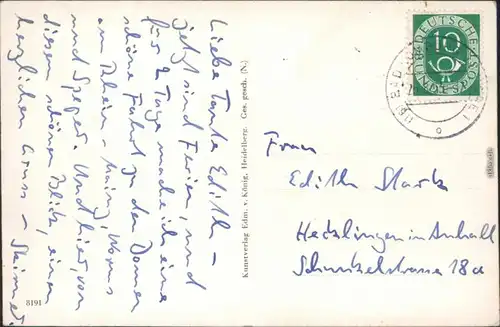 Liebe Tante Edith –
jetzt sind Ferien, und
für 2 Tage mache ich eine
schöne Fahrt zu den Domen
am Rhein – Mainz, Worms
und Speyer. Und hier, von
diesem schönen Blick, einen
herzlichen Gruss –
8191
Kunstverlag Edm. v. König, Heidelberg. Ges. gesch. (N.)
DEUTSCHE
10
BUNDESPOST
Frau
Edith Stark
Hecklingen in Anhalt
Schnitzelstrasse 18a